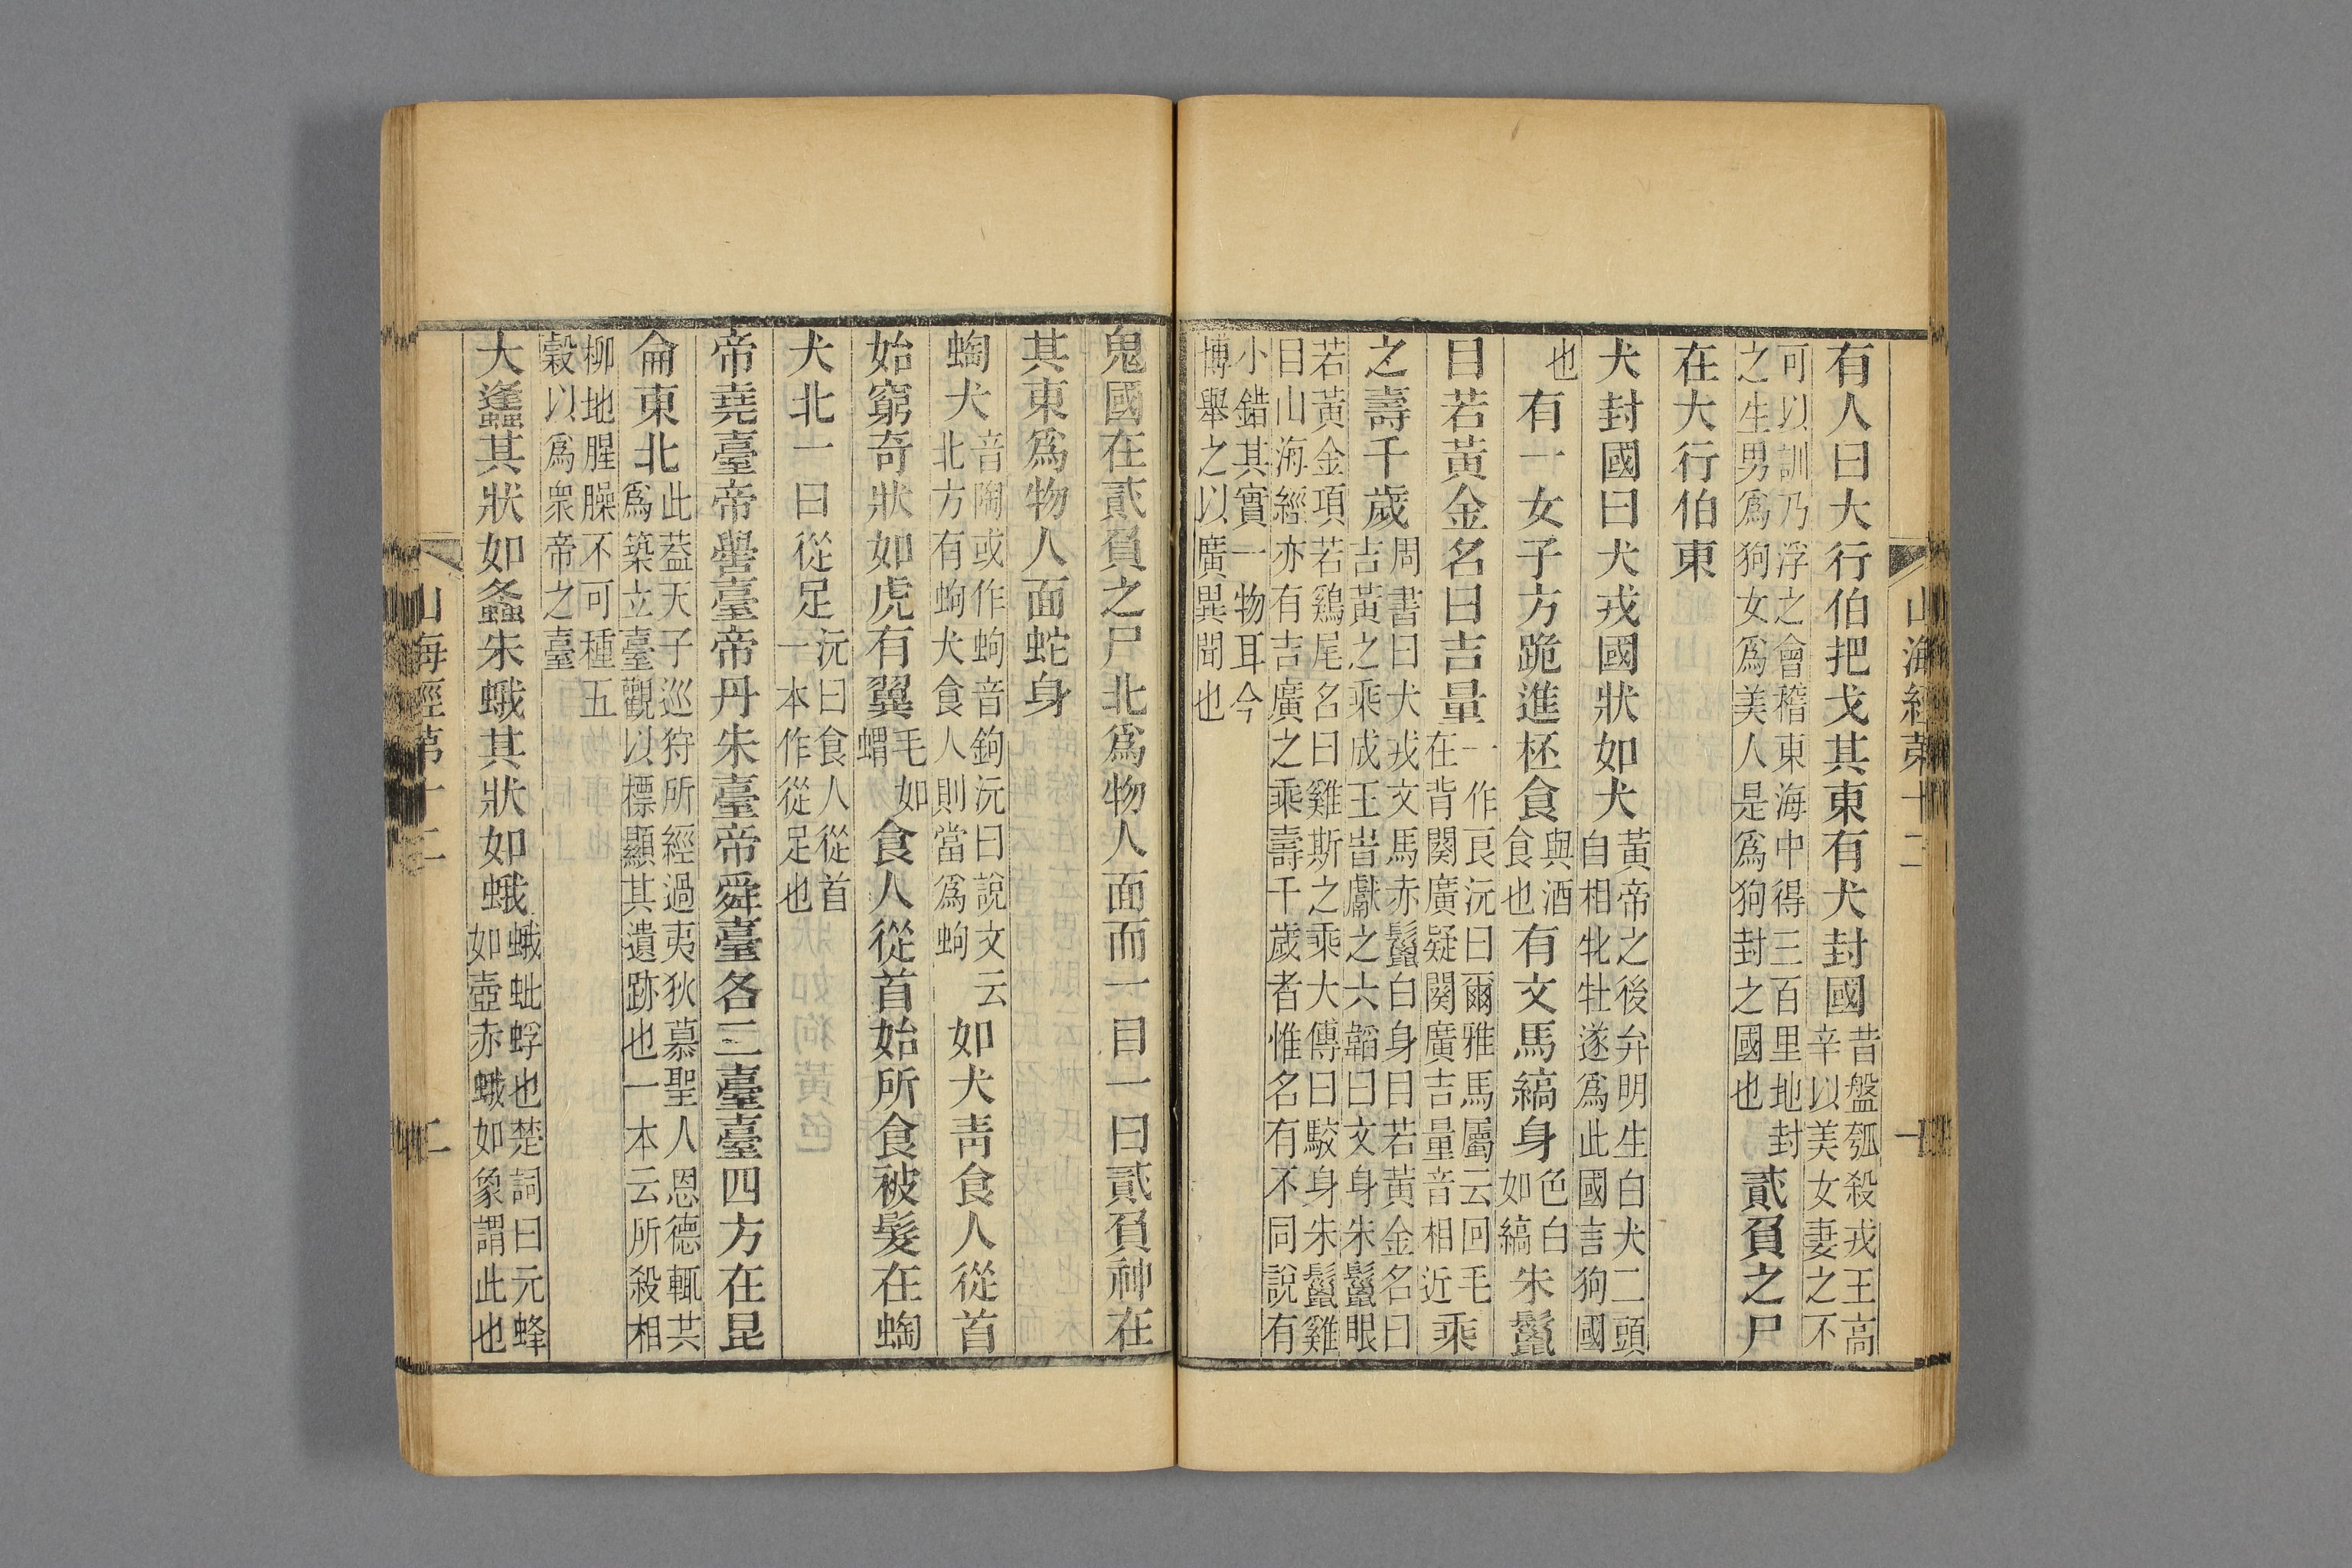 山海經第十二
一
有人曰大行伯把戈其東有犬封國昔盤瓠殺戎王高
辛以美女妻之不
可以訓乃浮之會稽東海中得三百里地封
之生男爲狗女爲美人是爲狗封之國也貳負之尸
在大行伯東
犬封國曰犬戎國狀如犬黃帝之後弁明生白犬二頭
自相牝牡遂爲此國言狗國
也有一女子方跪進柸食與酒
食也有文馬縞身色白
如縞朱鬣
目若黃金名曰吉量一作良沅曰爾雅馬屬云回毛
在背闋廣疑闋廣吉量音相近乘
之壽千歲周書曰犬戎文馬赤鬣白身目若黃金名曰
吉黃之乘成王時獻之六韜曰文身朱鬣眼
若黃金項若鷄尾名曰雞斯之乘大傳曰駮身朱鬣雞
目山海經亦有吉廣之乘壽千歲者惟名有不同說有
小錯其實一物耳今
博舉之以廣異聞也
鬼國在貳負之尸北爲物人面而一目一曰貳負神在
其東爲物人面蛇身
蜪犬音陶或作蚼音鉤沅曰說文云
北方有蚼犬食人則當爲蚼如犬青食人從首
始窮奇狀如虎有翼毛如
蝟食人從首始所食被髮在蜪
犬北一曰從足沅曰食人從首
一本作從足也
帝堯臺帝嚳臺帝丹朱臺帝舜臺各二臺臺四方在昆
侖東北此葢天子巡狩所經過夷狄慕聖人恩德輒共
爲築立臺觀以標顯其遺跡也一本云所殺相
柳地腥臊不可種五
穀以爲衆帝之臺
大蠭其狀如螽朱蛾其狀如蛾蛾蚍蜉也楚詞曰元蜂
如壺赤蛾如象謂此也
山海經第十二
二